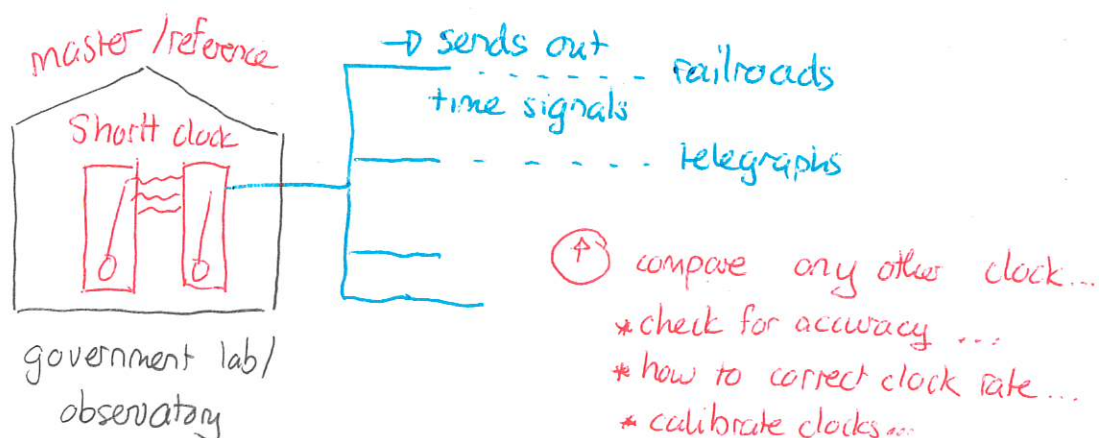 master / reference
Shortt clock
government lab/
observatory
→ sends out
time signals
railroads
telegraphs
compare any other clock...
* check for accuracy ...
* how to correct clock rate...
* calibrate clocks...